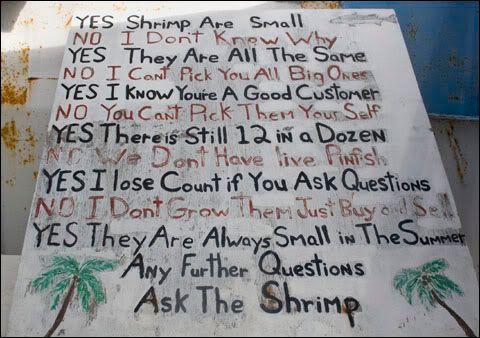 YES Shrimp Are Small
NO I Don't Know Why
YES They Are All The Same
NO I Cant Pick You All Big Ones
YES I Know Youre A Good Customer
NO You Cant Pick Them Your Self
YES There is Still 12 in a Dozen
NO We Dont Have live Pinfish
YES I lose Count if You Ask Questions
NO I Dont Grow Them Just Buy and Sell
YES They Are Always Small in The Summer
Any Further Questions
Ask The Shrimp